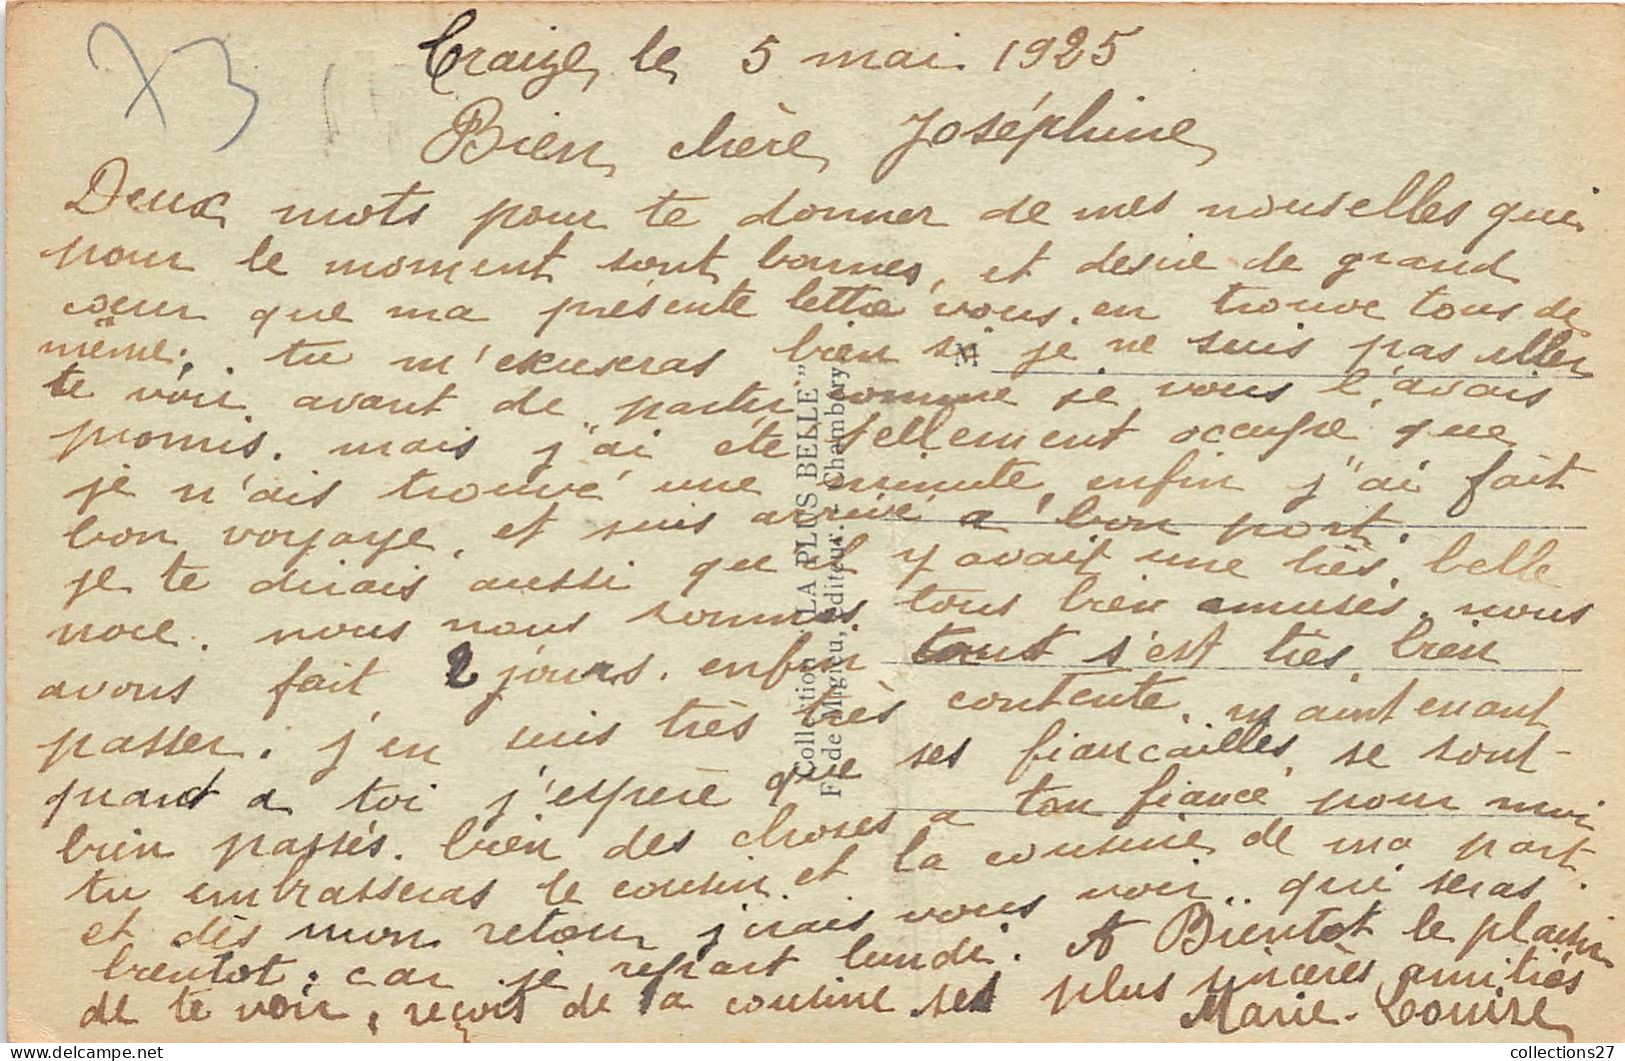 X3
Craize, le 5 mai 1925
Bien chère Joséphine,
Deux mots pour te donner de mes nouselles qui
pour le moment sont bonnes, et desire de grand
coeur que ma présente lettre vous en trouve tous de
même; tu m'excuseras bien si je ne suis pas aller
te voir avant de partir comme je vous l'avais
promis. mais j'ai été tellement occupé que
je n'ais trouvé une minute, enfin j'ai fait
bon voyage, et suis arrivé a bon port.
je te dirais aussi que il y avait une très belle
noce. nous nous sommes tous bien amusés. nous
avons fait 2 jours. enfin tout s'est très bien
passer. j'en suis très très contente. maintenant
quant a toi j'espère que ses fiancailles, se sont
bien passés. bien des choses a ton fiancé pour moi
tu embrasseras le cousin et la cousine de ma part.
et dès mon retour j'irais vous voir. qui seras
bientot; car je repart lundi. A Bientot le plaisir
de te voir, reçois de ta cousine ses plus sincères amitiés
Marie-Louise
Collection "LA PLUS BELLE"
F. de Migieu, éditeur. - Chambéry
M
collections27